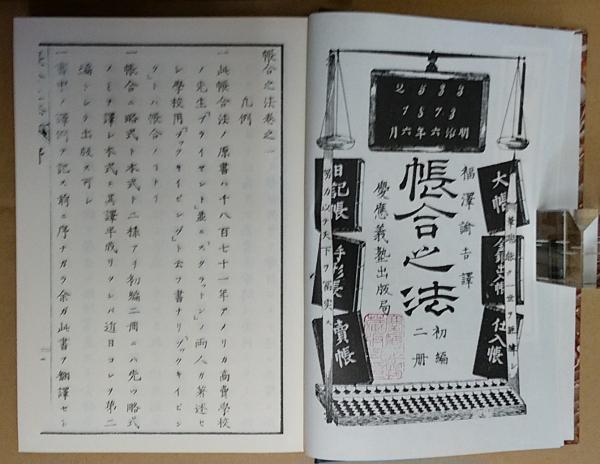 2533
1873
明治六年六月
福澤諭吉譯
帳合之法
初編
二冊
慶應義塾出版局
大帳
金銀出入帳
仕入帳
日記帳
手形帳
賣帳
帳合之法卷之一
凡例
一此帳合法ノ原書ハ千八百七十一年アメリカ商賣學校
ノ先生「ブライヤント」並ニ「スタラットン」ノ両人ガ著述セ
シ學校用「ブックキイピング」ト云フ書ナリ「ブックキイピン
グ」トハ帳合ノコトナリ
一帳合ニ略式ト本式ト二様アリ初編二冊ニハ先ツ略式
ノミヲ譯シ本式モ其譯半成リタレバ追日コレヲ第二
編トシテ出版ス可シ
一書中ノ譯例ヲ記ス前ニ序ナガラ余ガ此書ヲ飜譯セシ